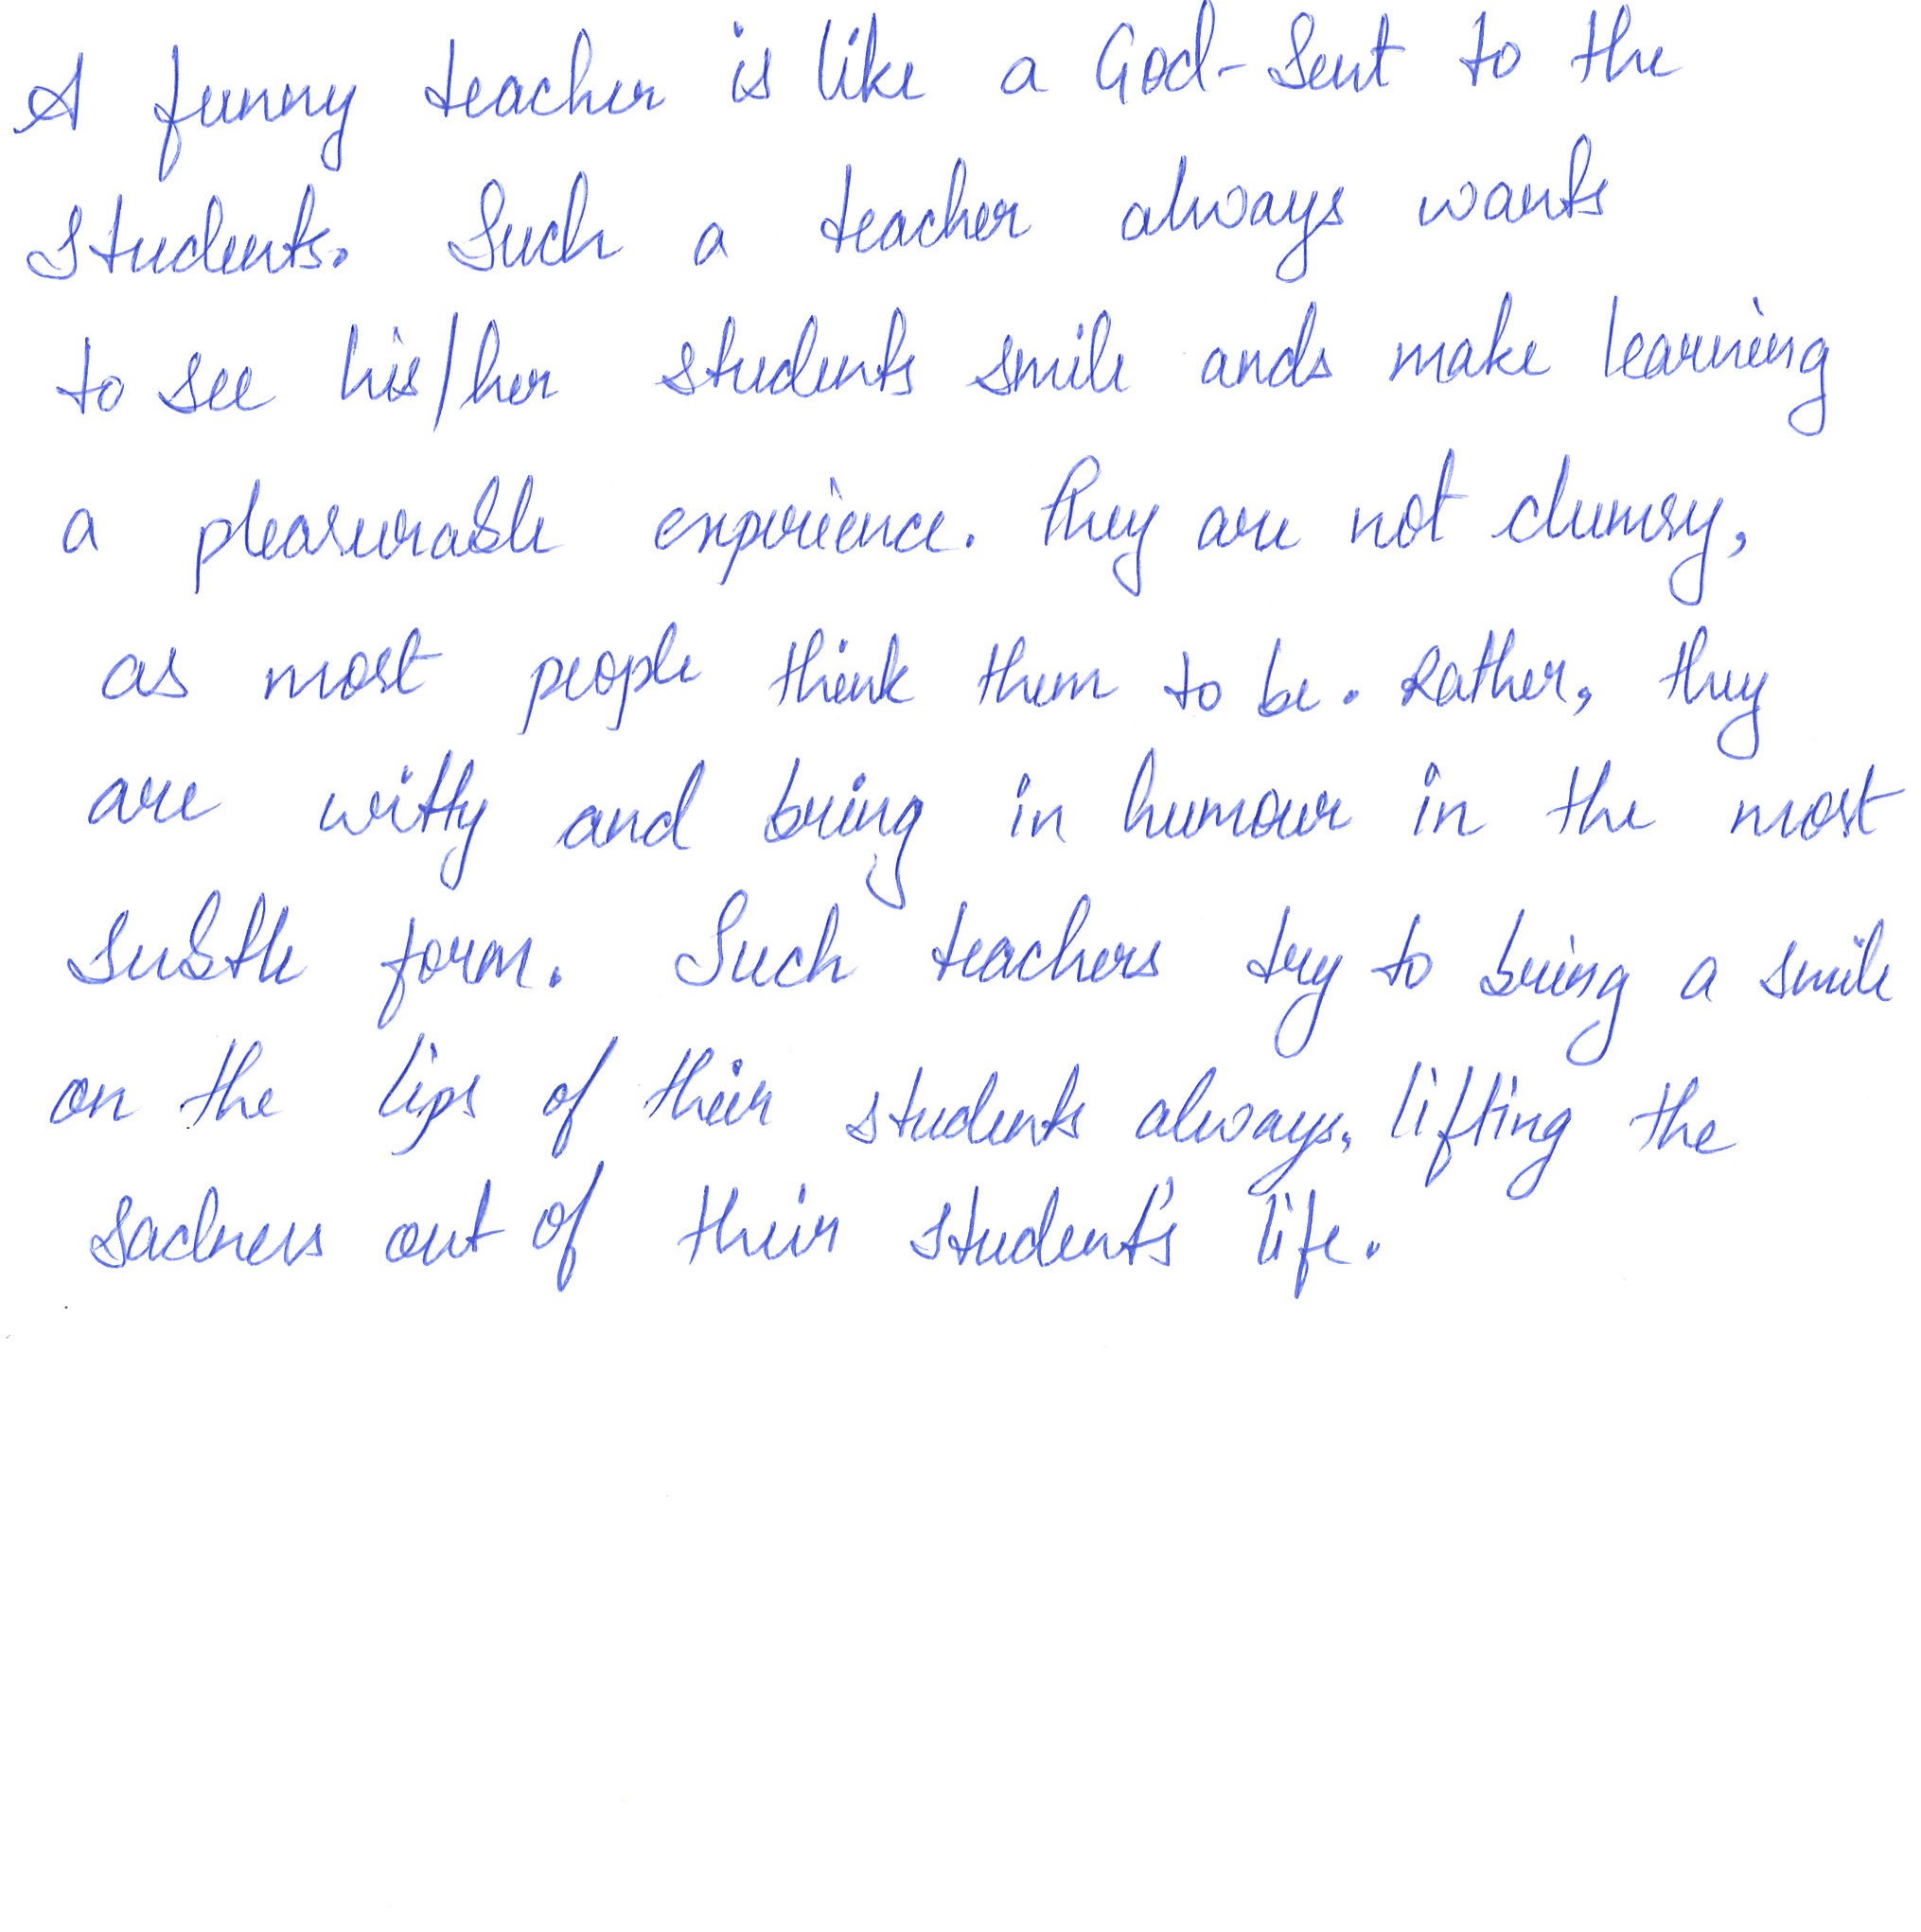 A funny teacher is like a God-Sent to the
students. Such a teacher always wants
to see his/her students smile ands make learning
a pleasurable experience. They are not clumsy,
as most people think them to be. Rather, they
are witty and bring in humour in the most
subtle form. Such teachers try to bring a smile
on the lips of their students always, lifting the
sadness out of their student's life.